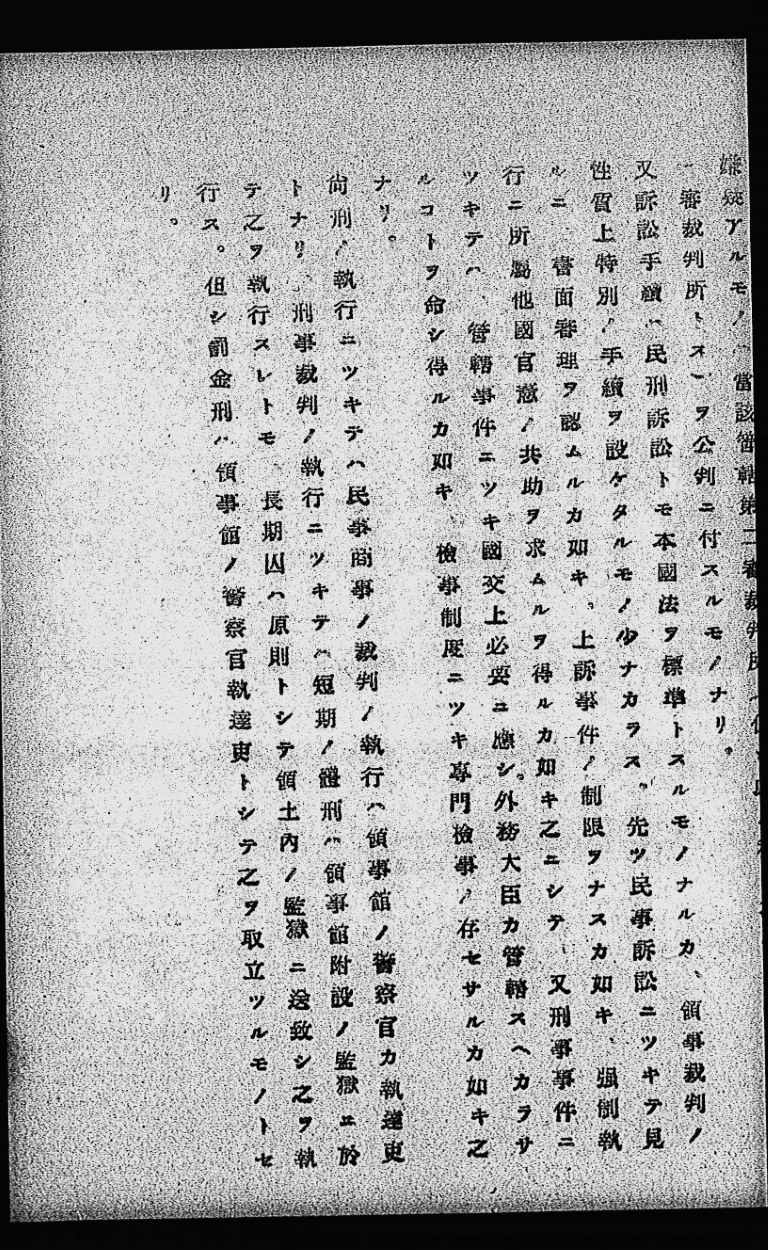 嫌疑アルモノハ當該管轄第二審裁判所
一審裁判所トス」ヲ公判ニ付スルモノナリ。
又訴訟手續ハ民刑訴訟トモ本國法ヲ標準トスルモノナルカ、領事裁判ノ
性質上特別ノ手續ヲ設ケタルモノ少ナカラス。先ツ民事訴訟ニツキテ見
ルニ、書面審理ヲ認ムルカ如キ、上訴事件ノ制限ヲナスカ如キ、强制執
行ニ所屬他國官憲ノ共助ヲ求ムルヲ得ルカ如キ之ニシテ、又刑事事件ニ
ツキテハ、管轄事件ニツキ國交上必要ニ應シ。外務大臣カ管轄スヘカラサ
ルコトヲ命シ得ルカ如キ、檢事制度ニツキ專門檢事ノ存セサルカ如キ之
ナリ。
尙刑ノ執行ニツキテハ民事商事ノ裁判ノ執行ハ領事館ノ警察官カ執達吏
トナリ、刑事裁判ノ執行ニツキテハ短期ノ體刑ハ領事館附設ノ監獄ニ於
テ之ヲ執行スレトモ、長期囚ハ原則トシテ領土內ノ監獄ニ送致シ之ヲ執
行ス。但シ罰金刑ハ領事館ノ警察官執達吏トシテ之ヲ取立ツルモノトセ
リ。